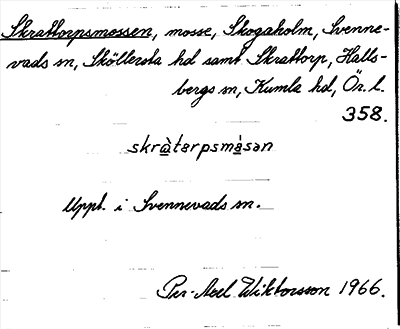 Skrattorpsmossen, mosse, Skogaholm, Svenne-
vads sn, Sköllersta hd samt Skrattorp, Halls-
bergs sn, Kumla hd, Ör. l.
358.
skràtərpsmåsən
Uppt. i Svennevads sn.
Per-Axel Wiktorsson 1966.